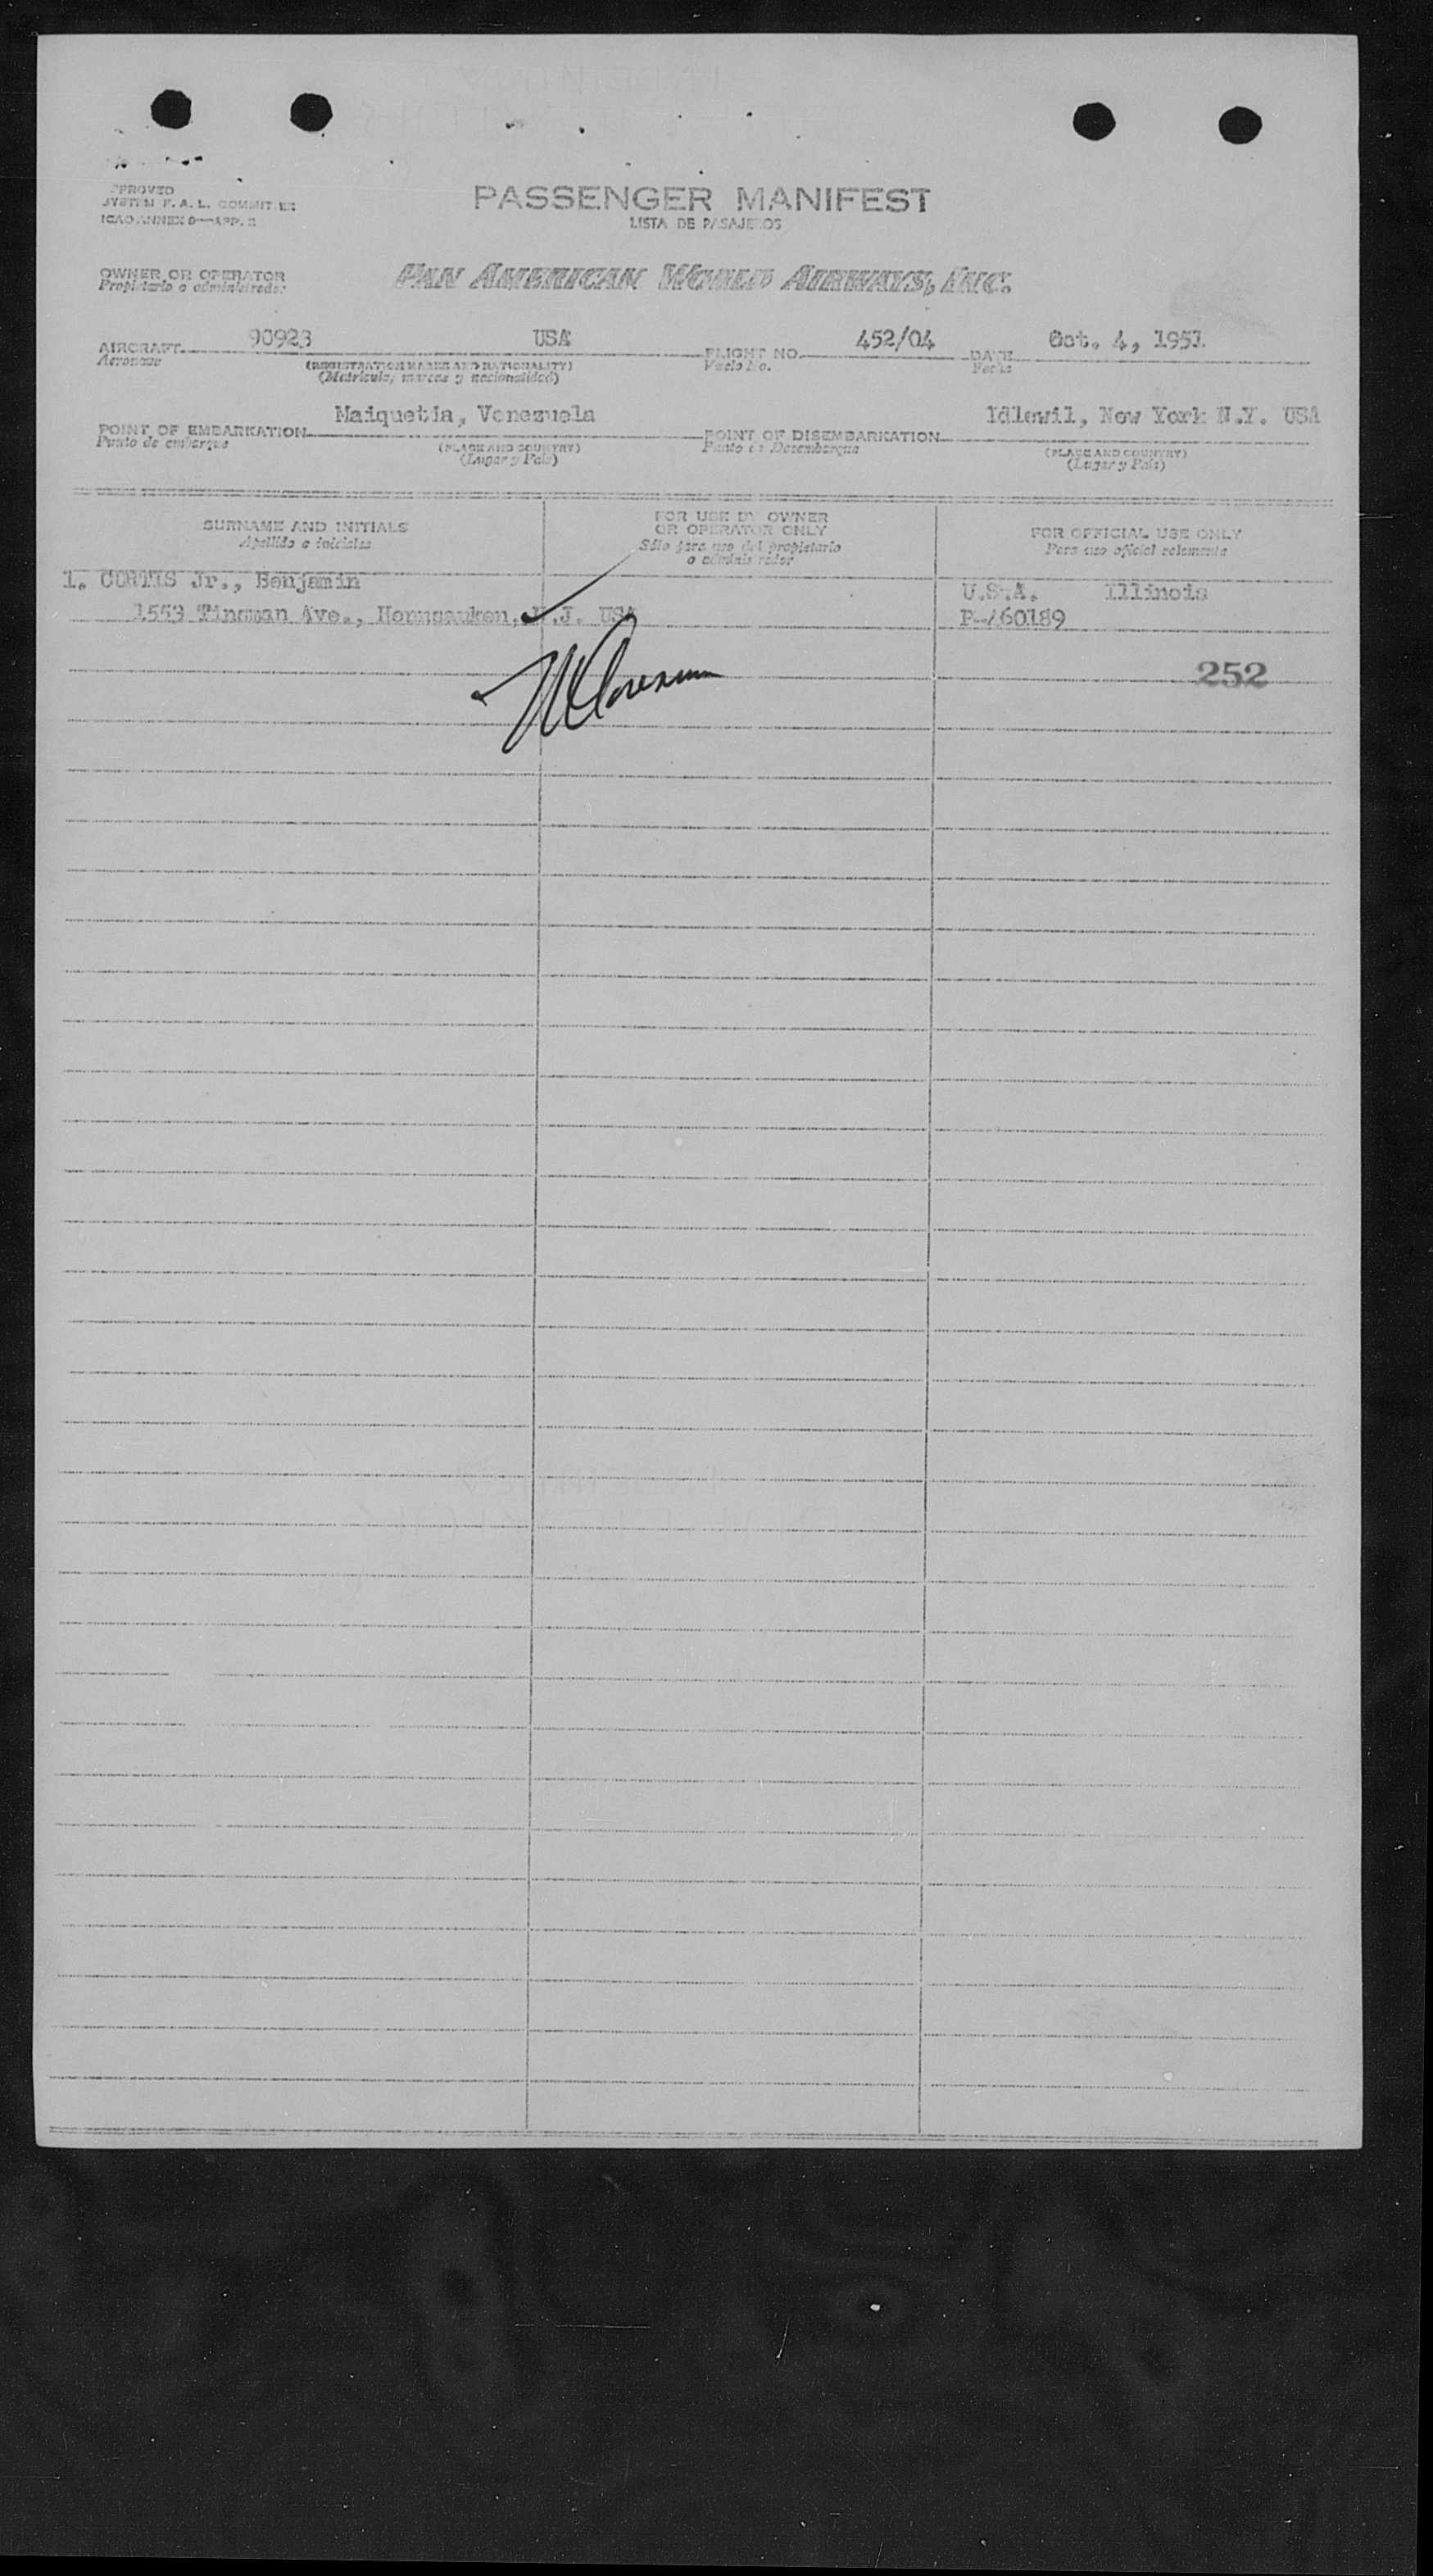 APPROVED
SYSTEM F. A. L. COMMITTEE
ICAO ANNEX 9—APP. 2
PASSENGER MANIFEST
LISTA DE PASAJEROS
OWNER OR OPERATOR
Propietario o administrador
PAN AMERICAN WORLD AIRWAYS, INC.
AIRCRAFT 90923 USA FLIGHT NO. 452/04 DATE Oct. 4, 1951
Aeronave (REGISTRATION MARKS AND NATIONALITY) Vuelo No. Fecha
(Matrícula, marcas y nacionalidad)
POINT OF EMBARKATION Maiquetia, Venezuela POINT OF DISEMBARKATION Idlewil, New York N.Y. USA
Punto de embarque (PLACE AND COUNTRY) Punto de Desembarque (PLACE AND COUNTRY)
(Lugar y País) (Lugar y País)
SURNAME AND INITIALS
Apellido e iniciales
FOR USE BY OWNER
OR OPERATOR ONLY
Sólo para uso del propietario
o administrador
FOR OFFICIAL USE ONLY
Para uso oficial solamente
1. CURTIS Jr., Benjamin U.S.A. Illinois
1553 Ave., N.J. USA P-460189
252